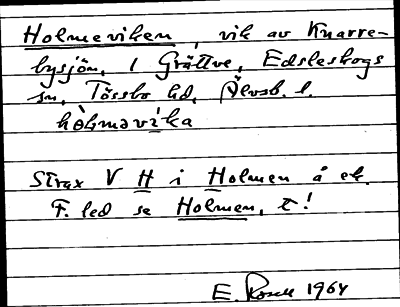 Holmeviken, vik av Knarre-
bysjön, i Grättve, Edsleskogs
sn, Tössbo hd, Älvsb. l.
hòlmavika
Strax V H i Holmen å ek.
F. led se Holmen, t!
E. Rosell 1964